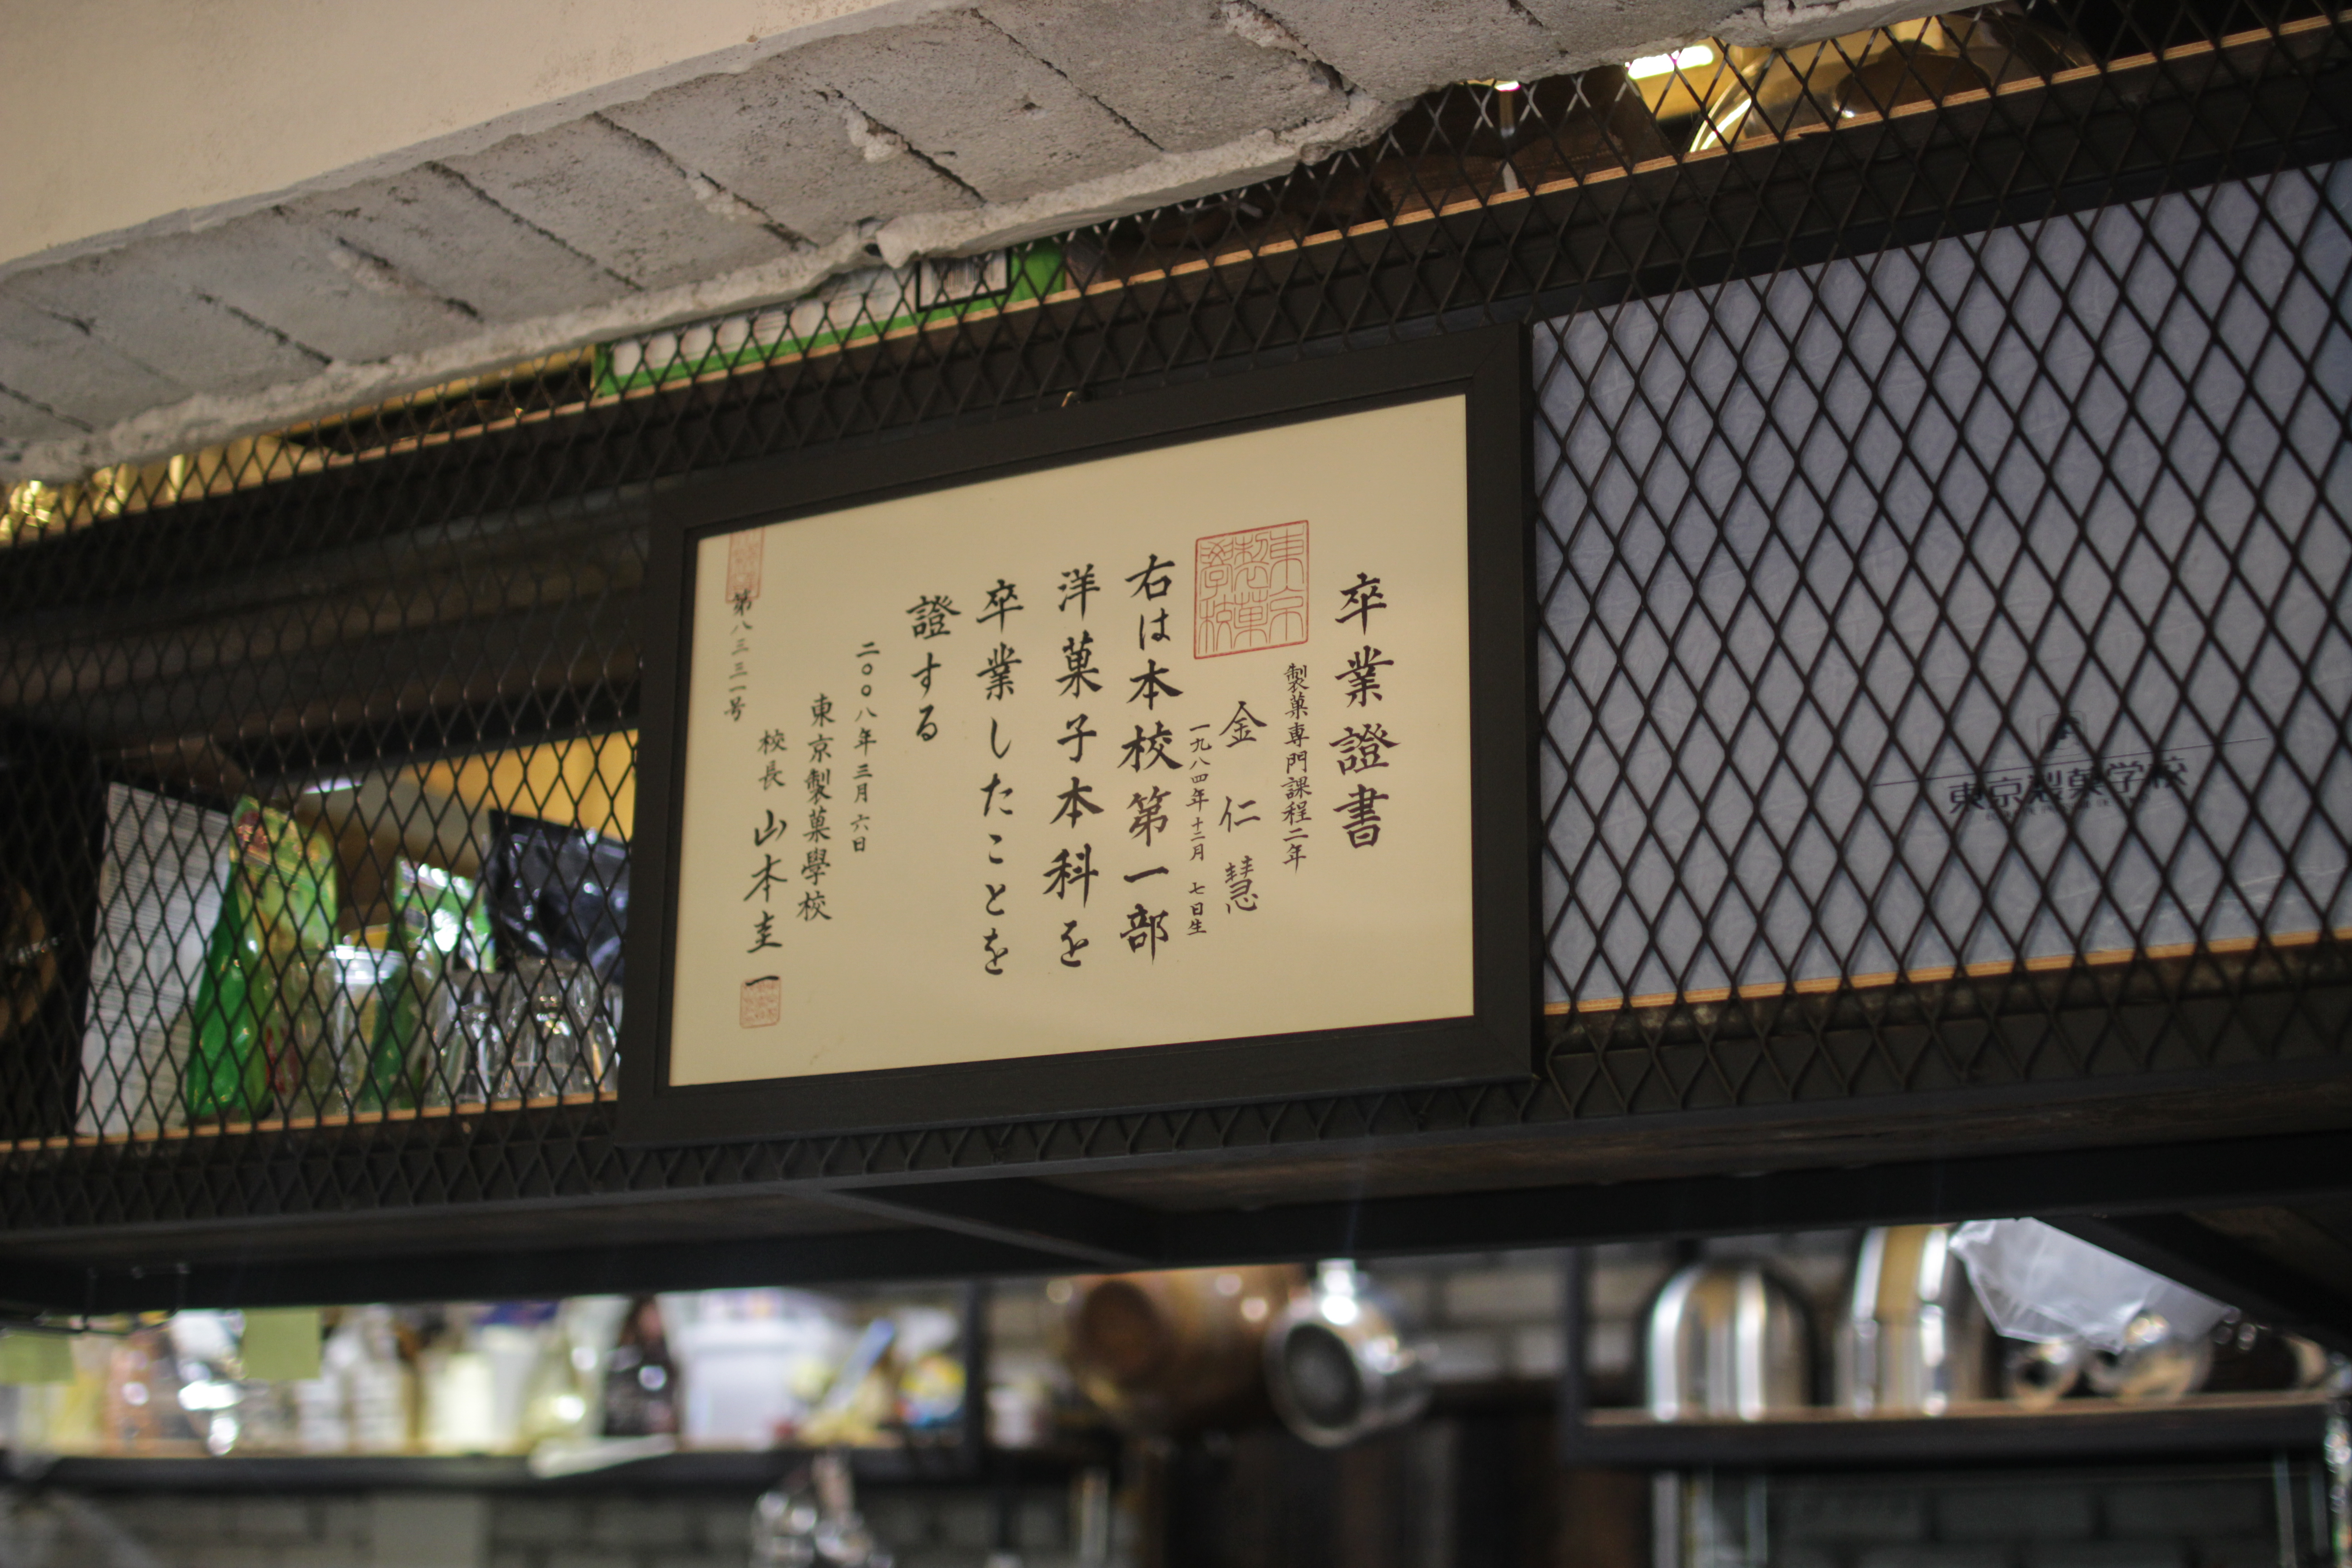 卒業證書
製菓専門課程二年
金仁慧
一九八四年十二月七日生
右は本校第一部
洋菓子本科を
卒業したことを
證する
二〇〇八年三月六日
東京製菓學校
校長 山本圭一
第八三三一号
東京製菓学校